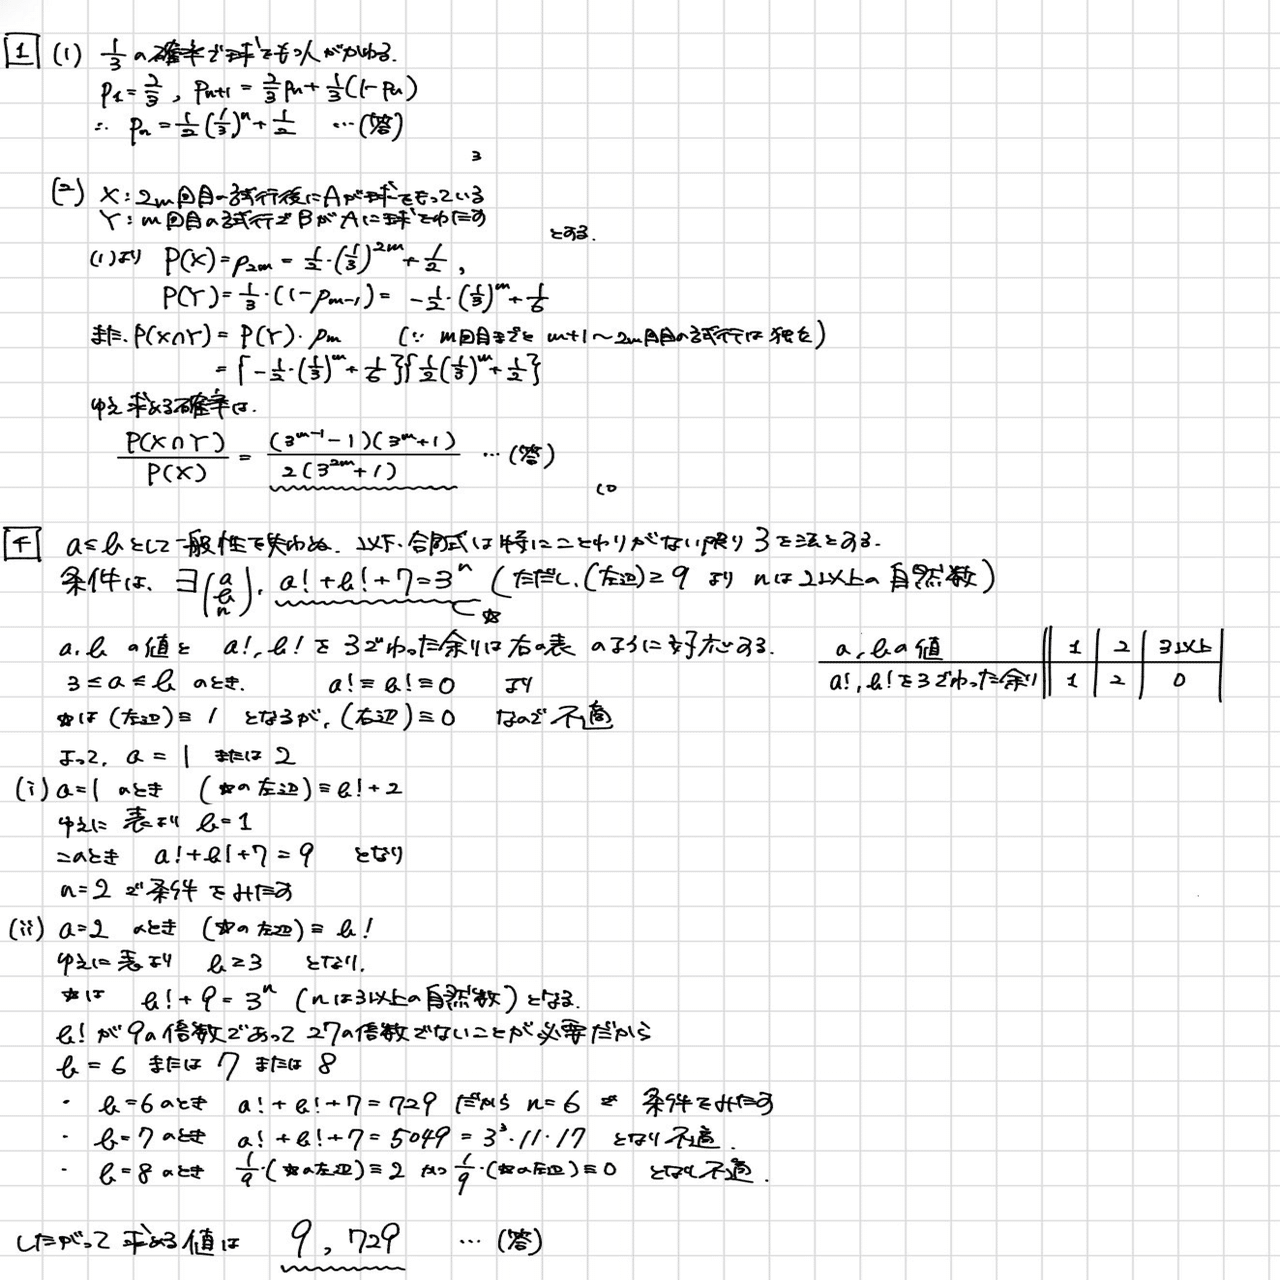 1 (1) 1/3 の確率で球をもつ人がかわる.
p₁ = 2/3 , pₙ₊₁ = 2/3 pₙ + 1/3 (1-pₙ)
∴ pₙ = 1/2 (1/3)ⁿ + 1/2 …(答)
3
(2) X : 2m回目の試行後にAが球をもっている
Y : m回目の試行でBがAに球をわたす
とする.
(1)より P(X) = p₂ₘ = 1/2・(1/3)²ᵐ + 1/2 ,
P(Y) = 1/3・(1-pₘ₋₁) = -1/2・(1/3)ᵐ + 1/6
また. P(X∩Y) = P(Y)・pₘ (∵ m回目までと m+1〜2m回目の試行は独立)
= {-1/2・(1/3)ᵐ + 1/6}{1/2(1/3)ᵐ + 1/2}
ゆえ求める確率は.
P(X∩Y)/P(X) = (3ᵐ⁻¹-1)(3ᵐ+1)/2(3²ᵐ+1) …(答)
10
4 a≤bとして一般性を失わぬ. 以下. 合同式は特にことわりがない限り3を法とする.
条件は. ∃(a b n), a!+b!+7=3ⁿ (ただし, (左辺)≥9 より nは2以上の自然数)
☆
a, b の値と a!, b! を3でわった余りは右の表のように対応する.
a, bの値 | 1 | 2 | 3以上
a!, b!を3でわった余り | 1 | 2 | 0
3≤a≤b のとき. a!≡b!≡0 より
☆は (左辺)≡1 となるが, (右辺)≡0 なので不適
よって, a = 1 または 2
(i) a=1 のとき (☆の左辺)≡b!+2
ゆえに 表より b=1
このとき a!+b!+7=9 となり
n=2 で条件をみたす
(ii) a=2 のとき (☆の左辺)≡b!
ゆえに表より b≥3 となり.
☆は b!+9=3ⁿ (nは3以上の自然数)となる.
b! が9の倍数であって27の倍数でないことが必要だから
b = 6 または 7 または 8
・ b=6のとき a!+b!+7=729 だから n=6 で 条件をみたす
・ b=7のとき a!+b!+7=5049=3³・11・17 となり不適.
・ b=8のとき 1/9・(☆の左辺)≡2 かつ 1/9・(☆の右辺)≡0 となり不適.
したがって 求める値は 9, 729 …(答)